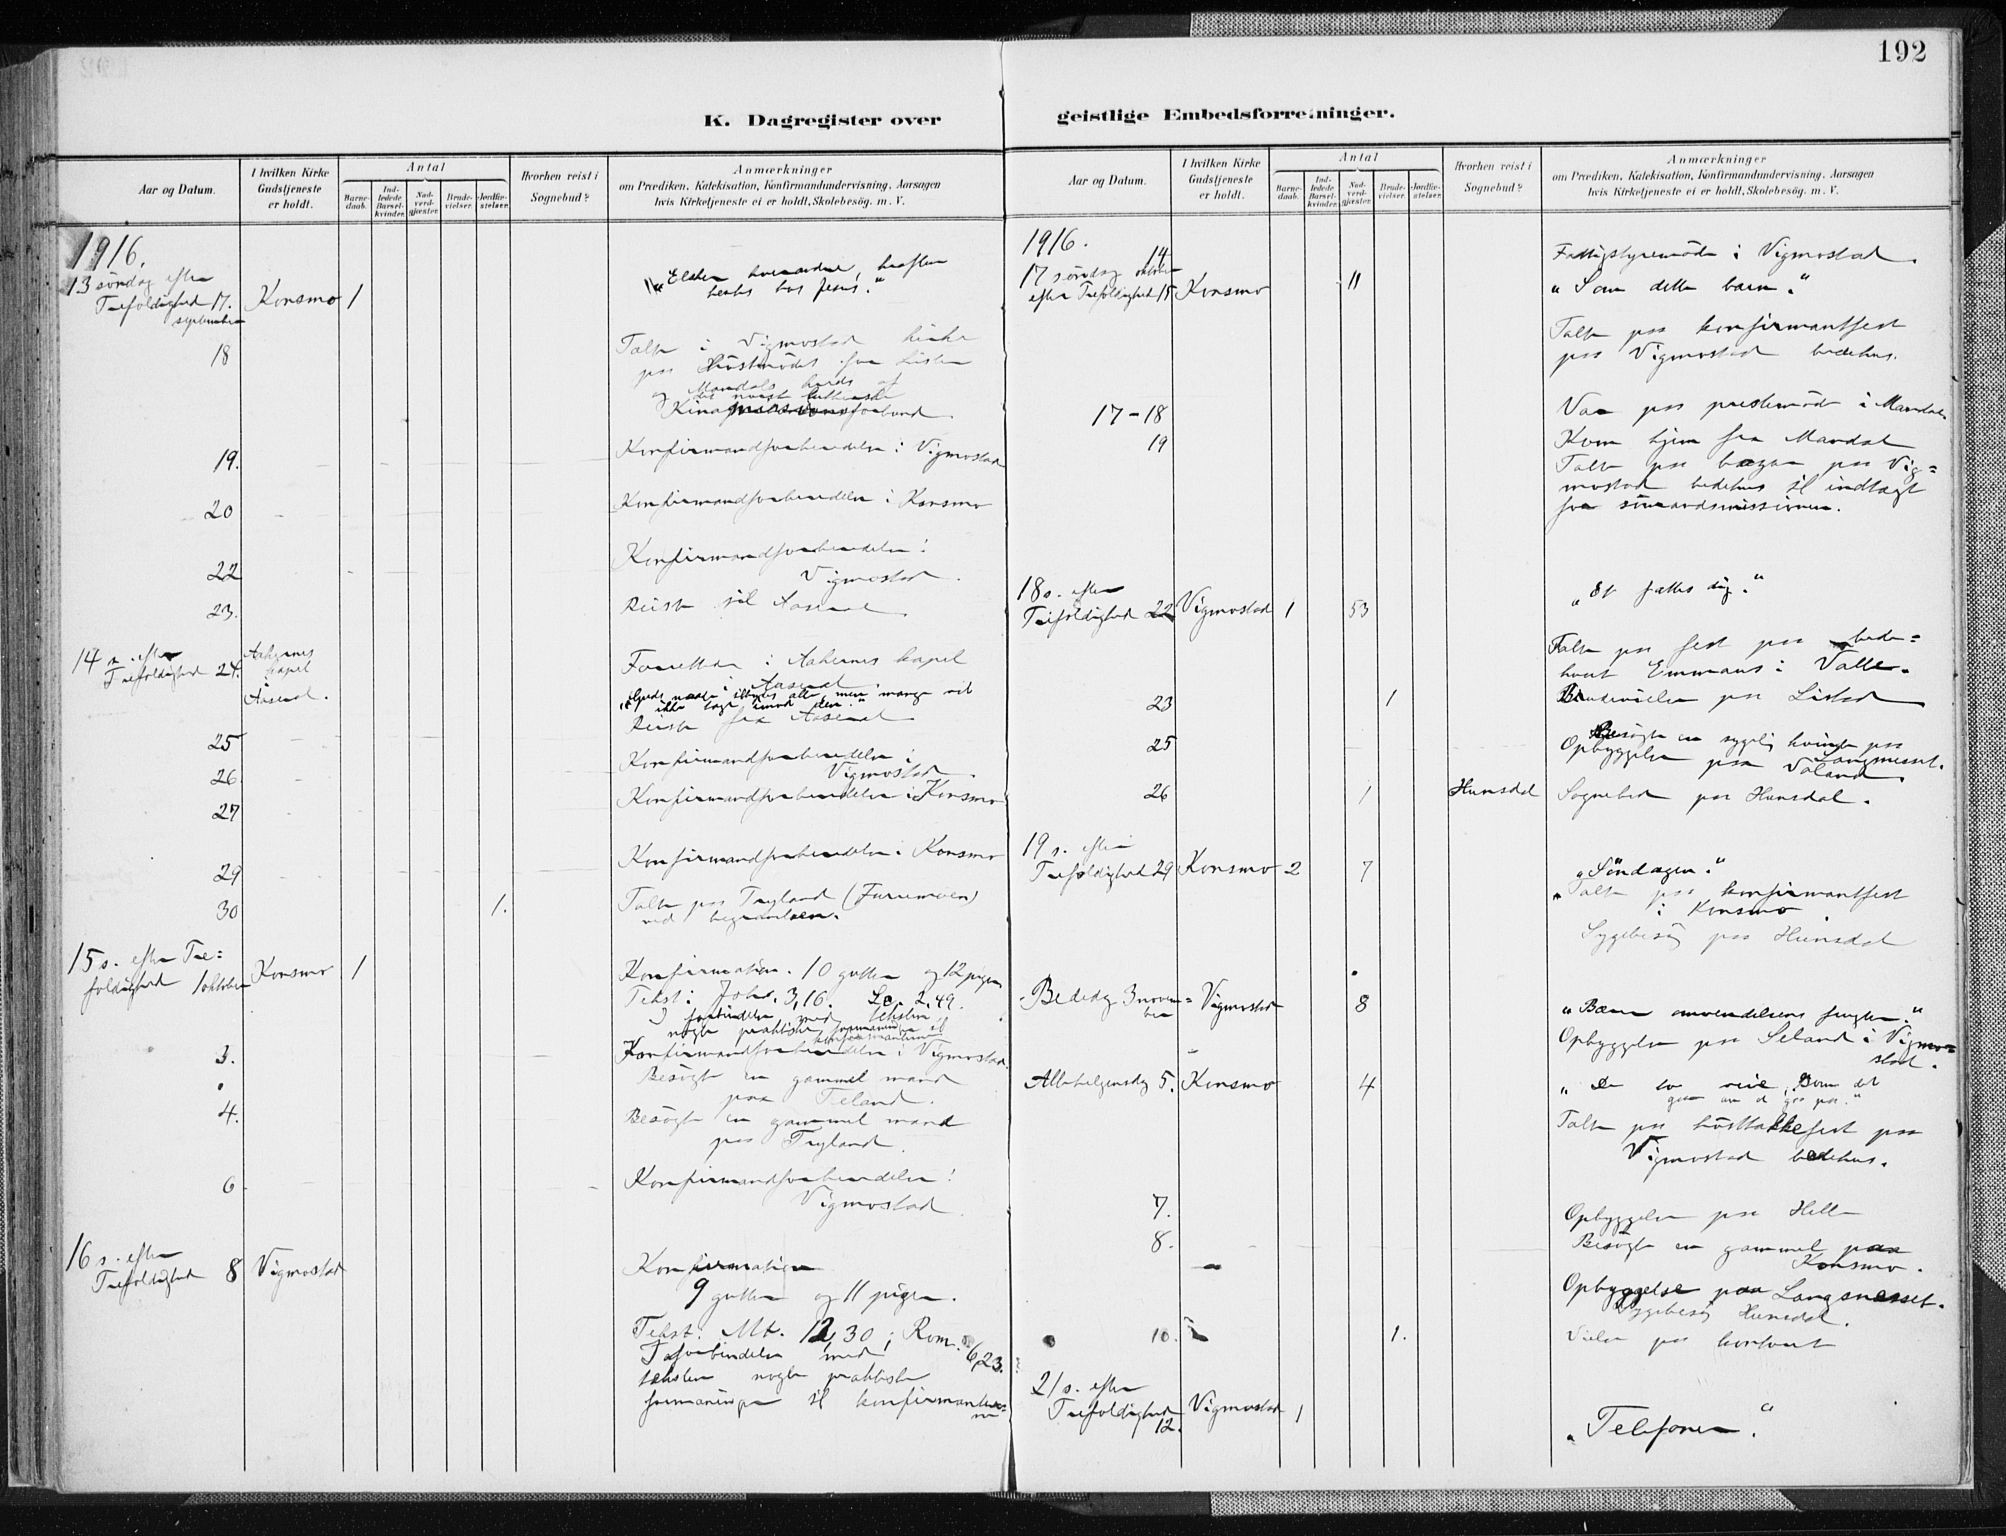 192
K. Dagregister over
Aar og Datum.
I hvilken Kirke Gudstjeneste er holdt.
Antal
Barne-daab.
Ind-ledede Barsel-kvinder.
Nad-verd-gjester.
Brude-vielser.
Jordfæ-stelser.
Hvorhen reist i Sognebud?
Anmærkninger
om Prædiken, Katekisation, Konfirmandundervisning, Aarsagen
hvis Kirketjeneste ei er holdt, Skolebesøg. m. V.
1916.
13 söndag efter
Trefoldighed 17. september Konsmo 1
"Elsker hverandre, kraften
hertil hos Jesus."
18 Talte i Vigmostad kirke
paa Höstmödet for Lister
og Mandals kreds af
det norske lutherske
Kinamissionsforbund
19. Konfirmandforberedelse i Vigmostad
20 Konfirmandforberedelse i Konsmo
22 Konfirmandforberedelse i
Vigmostad.
23. Reiste til Aaseral.
14 s. efter
Trefoldighed 24. Aakernes kapel i Aaseral.
Forrettede i Aakernes kapel
i Aaseral
"Guds naade tilbydes alle, men mange vil
ikke tage imod den."
25 Reiste fra Aaseral
26. Konfirmandforberedelse i
Vigmostad.
27 Konfirmandforberedelse i Konsmo
29 Konfirmandforberedelse i Konsmo
30 1. Talte paa Tryland (Furremoen)
ved begravelsen.
15 s. efter Tre=
foldighed 1 oktober Konsmo 1
Konfirmation. 10 gutter og 12 piger
Tekst: Joh. 3,16. Lc. 2,49.
I forbindelse med teksten
nogle praktiske formaninger til
konfirmanterne
3. Konfirmandforberedelse i Vigmostad.
Besögte en gammel mand
paa Teland.
4. Besögte en gammel mand
paa Tryland.
6 Konfirmandforberedelse i
Vigmostad
16 s. efter
Trefoldighed 8 Vigmostad
Konfirmation
9 gutter og 11 piger.
Tekst: Mt. 12,30; Rom. 6,23.
I forbindelse med
teksten nogle praktiske
formaninger til konfirmanterne
geistlige Embedsforretninger.
Aar og Datum.
I hvilken Kirke Gudstjeneste er holdt.
Antal
Barne-daab.
Ind-ledede Barsel-kvinder.
Nad-verd-gjester.
Brude-vielser.
Jordfæ-stelser.
Hvorhen reist i Sognebud?
Anmærkninger
om Prædiken, Katekisation, Konfirmandundervisning, Aarsagen
hvis Kirketjeneste ei er holdt, Skolebesøg. m. V.
1916.
14 Fattigstyremöde i Vigmostad.
17 söndag oktober
efter Trefoldighed 15 Konsmo 11 "Som dette barn."
Talte paa konfirmantfest
paa Vigmostad bedehus.
17-18 Var paa prestemöde i Mandal.
19 Kom hjem fra Mandal
Talte paa bazar paa Vig=
mostad bedehus til indtægt
for sömandsmissionen.
18 s. efter
Trefoldighed 22 Vigmostad 1 53
Talte paa fest paa bede=
huset Emmaus i Valle.
23 1 Brudevielse paa Listad
25 Besögte en sygelig kvinde paa
Langnesset.
Opbyggelse paa Valand.
26 1 Hunsdal Sognebud paa Hunsdal.
19 s. efter
Trefoldighed 29 Konsmo 2 7 "Söndagen."
Talte paa konfirmantfest
i Konsmo.
Sygebesög paa Hunsdal
Bededag 3 novem=
ber Vigmostad 8 "Bær omvendelsens frugter."
Opbyggelse paa Seland i Vigmo=
stad.
Allehelgensdag 5. Konsmo 4
Talte paa hösttakkefest paa
Vigmostad bedehus.
7. Opbyggelse paa Helle
8. Besögte en gammel paa
Konsmo.
Opbyggelse paa Langsnesset.
Sygebesög Hunsdal.
10. 1. Vielse paa kontoret
21 s. efter
Trefoldighed 12. Vigmostad 1
"Telefonen."